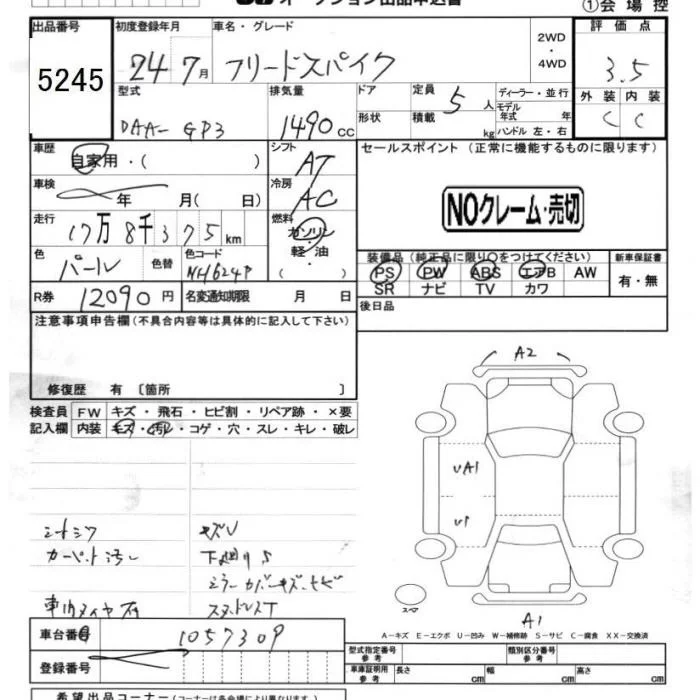 ①会場控
出品番号 初度登録年月 車名・グレード 2WD・4WD 評価点
5245 24 7月 フリードスパイク 3.5
型式 排気量 ドア 定員 5人 ディーラー・並行 外装 内装
DAA-GP3 1490cc 形状 積載 kg モデル年式 年 ハンドル 左・右 C C
車歴 自家用・( ) シフト AT セールスポイント (正常に機能するものに限ります)
車検 年 月( 日) 冷房 AC
NOクレーム・売切
走行 17万8千375km 燃料 ガソリン・軽油・( )
色 パール 色替 色コード NH624P
装備品(純正品に限り○をつけてください) 新車保証書
PS PW ABS エアB AW 有・無
SR ナビ TV カワ
R券 12090円 名変通知期限 月 日 後日品
注意事項申告欄(不具合内容等は具体的に記入して下さい)
修復歴 有 〔箇所 〕
検査員記入欄 FW キズ・飛石・ヒビ割・リペア跡・×要
内装 キズ・汚レ・コゲ・穴・スレ・キレ・破レ
A2
UA1
U1
シートシワ キズU
カーペット汚レ 下廻りS
ミラーカバーキズ・ヒビ
車内タイヤ有 スタッドレスT
スペア
A1
A-キズ E-エクボ U-凹み W-補修跡 S-サビ C-腐食 XX-交換済
車台番号 1057309
登録番号
型式指定番号 参考 類別区分番号 参考
車庫証明用 参考 長さ cm 幅 cm 高さ cm
希望出品コーナー